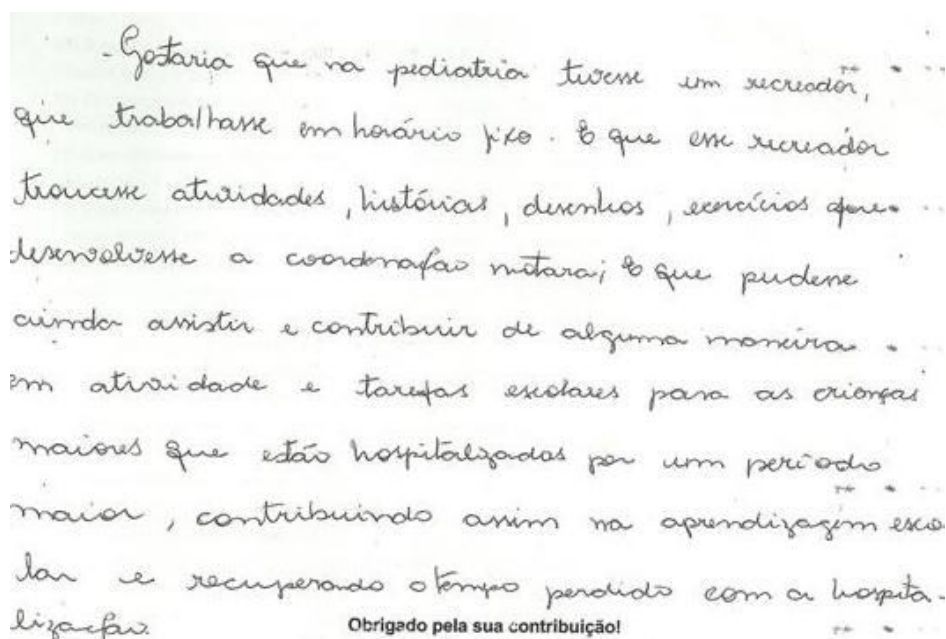 - Gostaria que na pediatria tivesse um recreador,
que trabalhasse em horário fixo. E que esse recreador
troucesse atividades, histórias, desenhos, exercícios que
desenvolvesse a coordenação motora; E que pudesse
ainda assistir e contribuir de alguma maneira
em atividade e tarefas escolares para as crianças
maiores que estão hospitalizadas por um período
maior, contribuindo assim na aprendizagem esco-
lar e recuperando o tempo perdido com a hospita-
lização.
Obrigado pela sua contribuição!